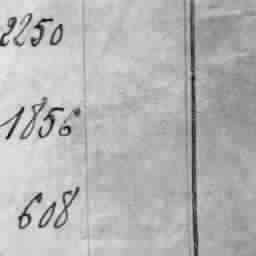 2250
1856
608